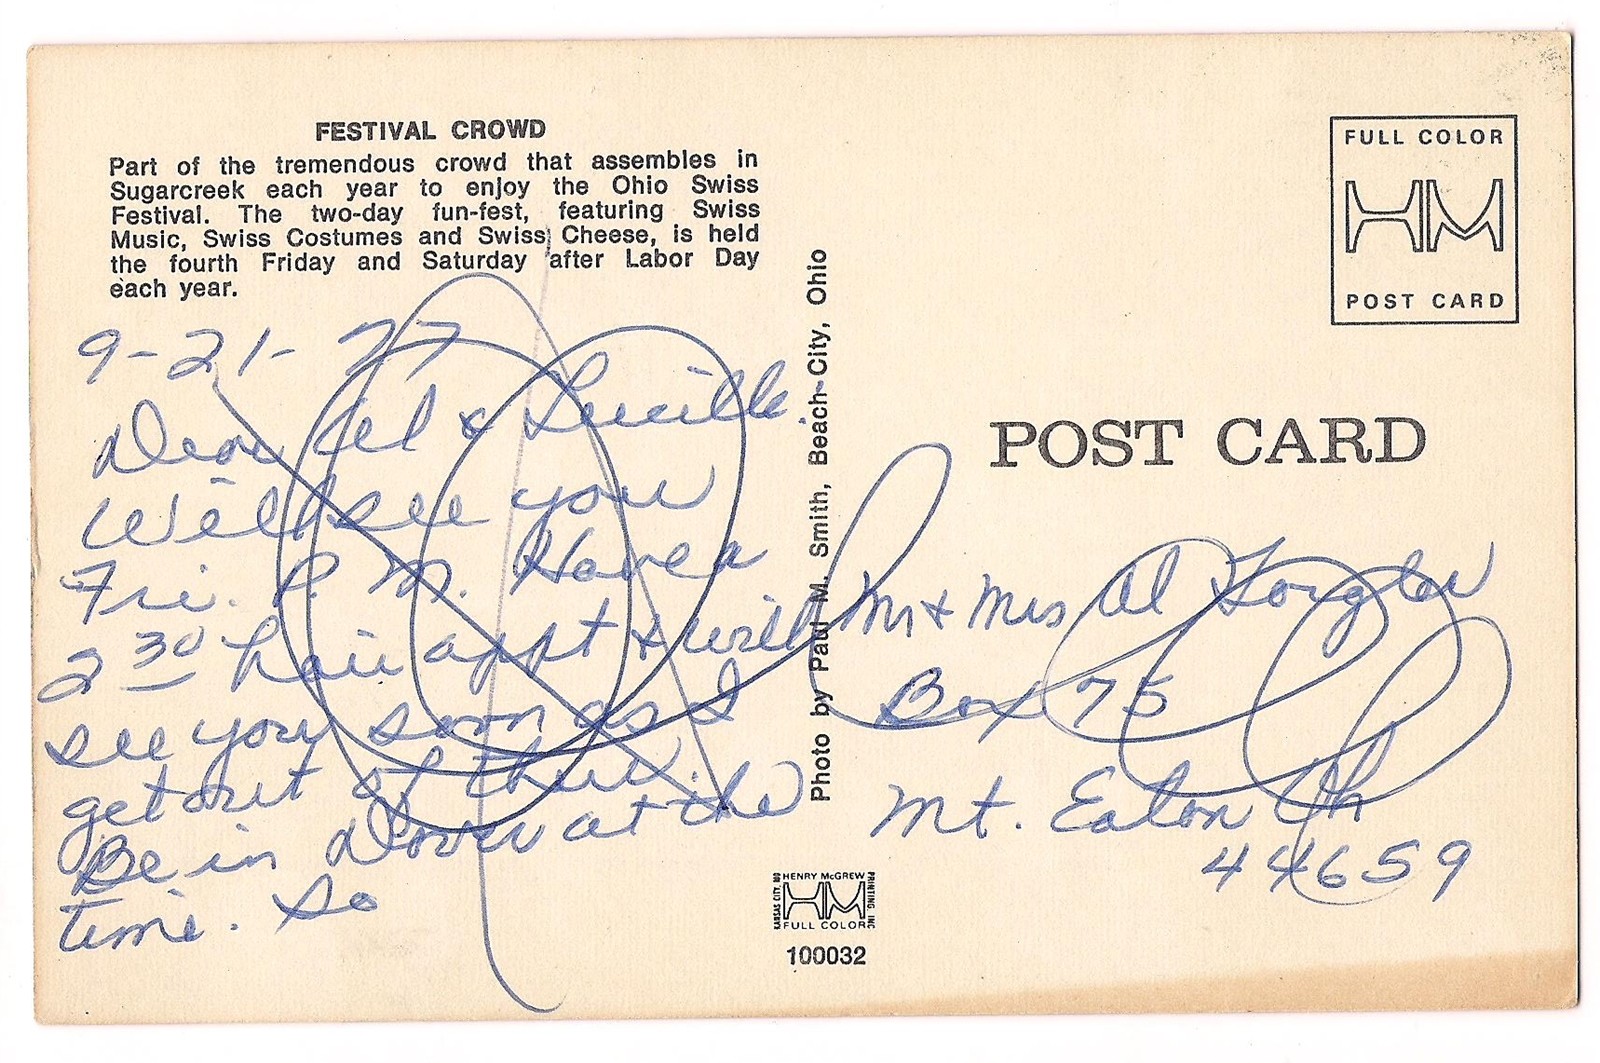 FESTIVAL CROWD
Part of the tremendous crowd that assembles in
Sugarcreek each year to enjoy the Ohio Swiss
Festival. The two-day fun-fest, featuring Swiss
Music, Swiss Costumes and Swiss Cheese, is held
the fourth Friday and Saturday after Labor Day
each year.
9-21-77
Dear Al & Lucille.
Will see you
Fri. P.M. Have a
2 30 hair appt & will
see you soon as I
get out of there.
Be in Dover at the
time. So
Photo by Paul M. Smith, Beach City, Ohio
FULL COLOR
HM
POST CARD
POST CARD
Mr & Mrs Al
Box 75
Mt. Eaton Oh
44659
HENRY McGREW
PRINTING, INC
KANSAS CITY, MO
HM
FULL COLOR
100032